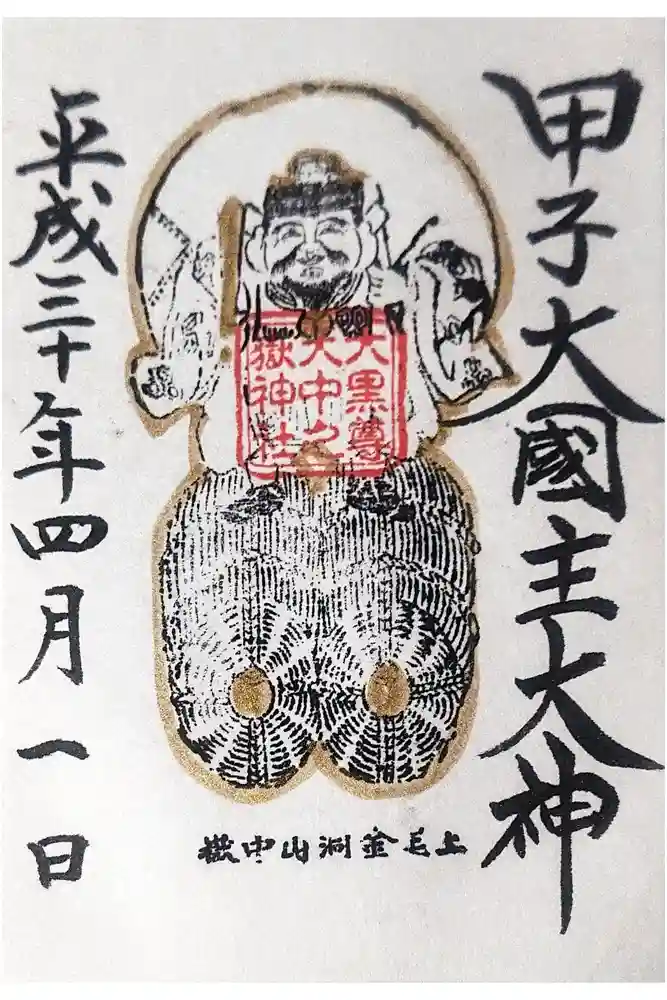 甲子大國主大神
大黒尊
大中
嶽神社
上毛金洞山中嶽
平成三十年四月一日